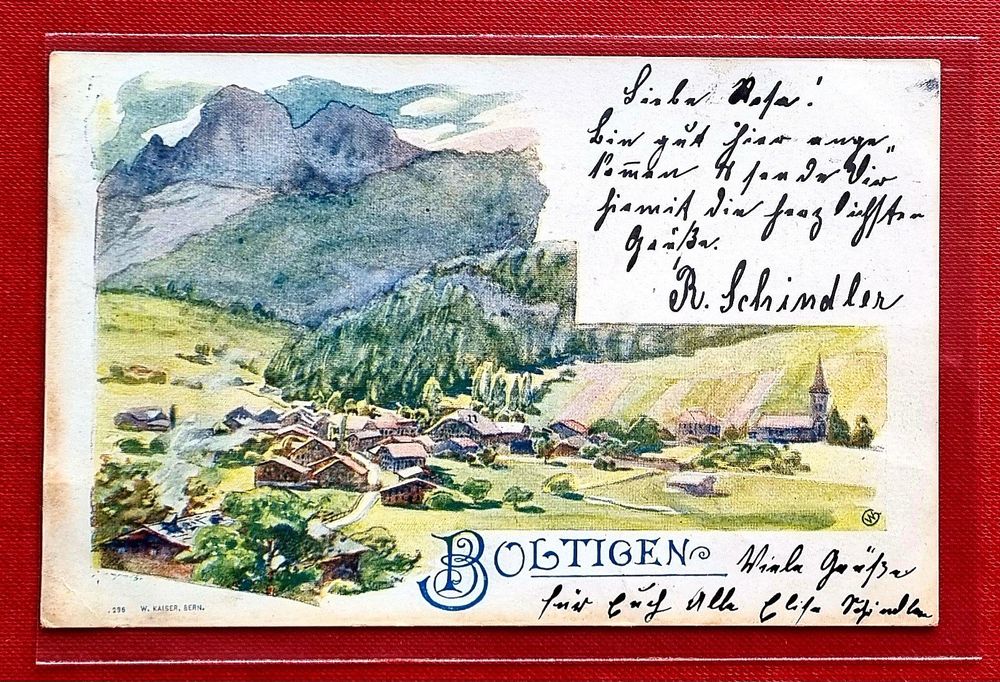 Liebe Rosa!
Bin gut hier ange„
kom̄en & sende Dir
hiermit die herzlichsten
Grüße.
R. Schindler
BOLTIGEN
Viele Grüße
für Euch Alle Elise Schindler
296 W. KAISER, BERN.